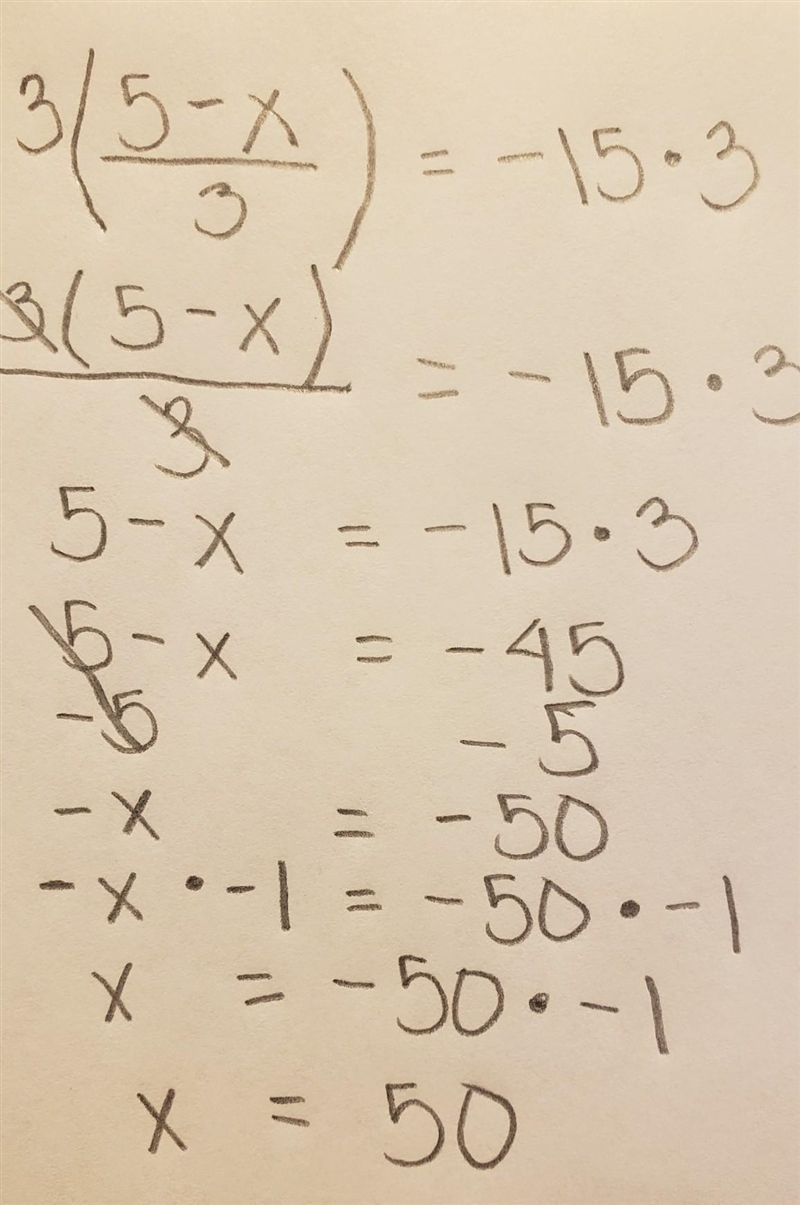 3(5-x/3) = -15·3
3(5-x)/3 = -15·3
5-x = -15·3
5-x = -45
-5 -5
-x = -50
-x·-1 = -50·-1
x = -50·-1
x = 50